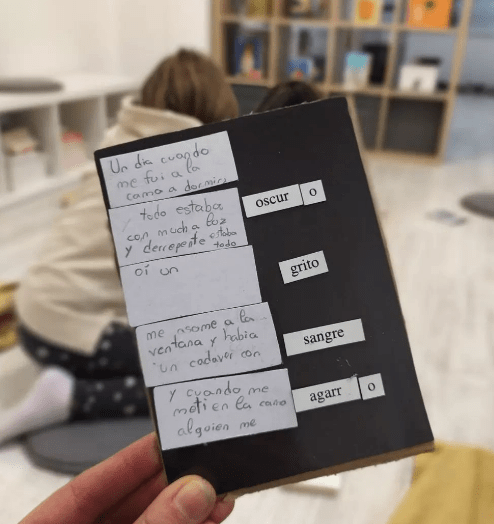 Un dia cuando
me fui a la
cama a dormir
todo estaba
con mucha luz
y derrepente estaba
todo
oscur o
oí un
grito
me asome a la
ventana y habia
un cadaver con
sangre
y cuando me
meti en la cama
alguien me
agarr o